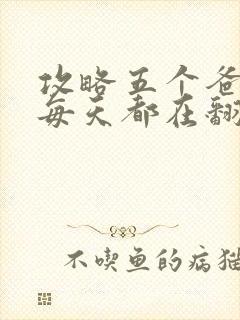 攻略五个爸
每天都在翻
不喫鱼的病猫